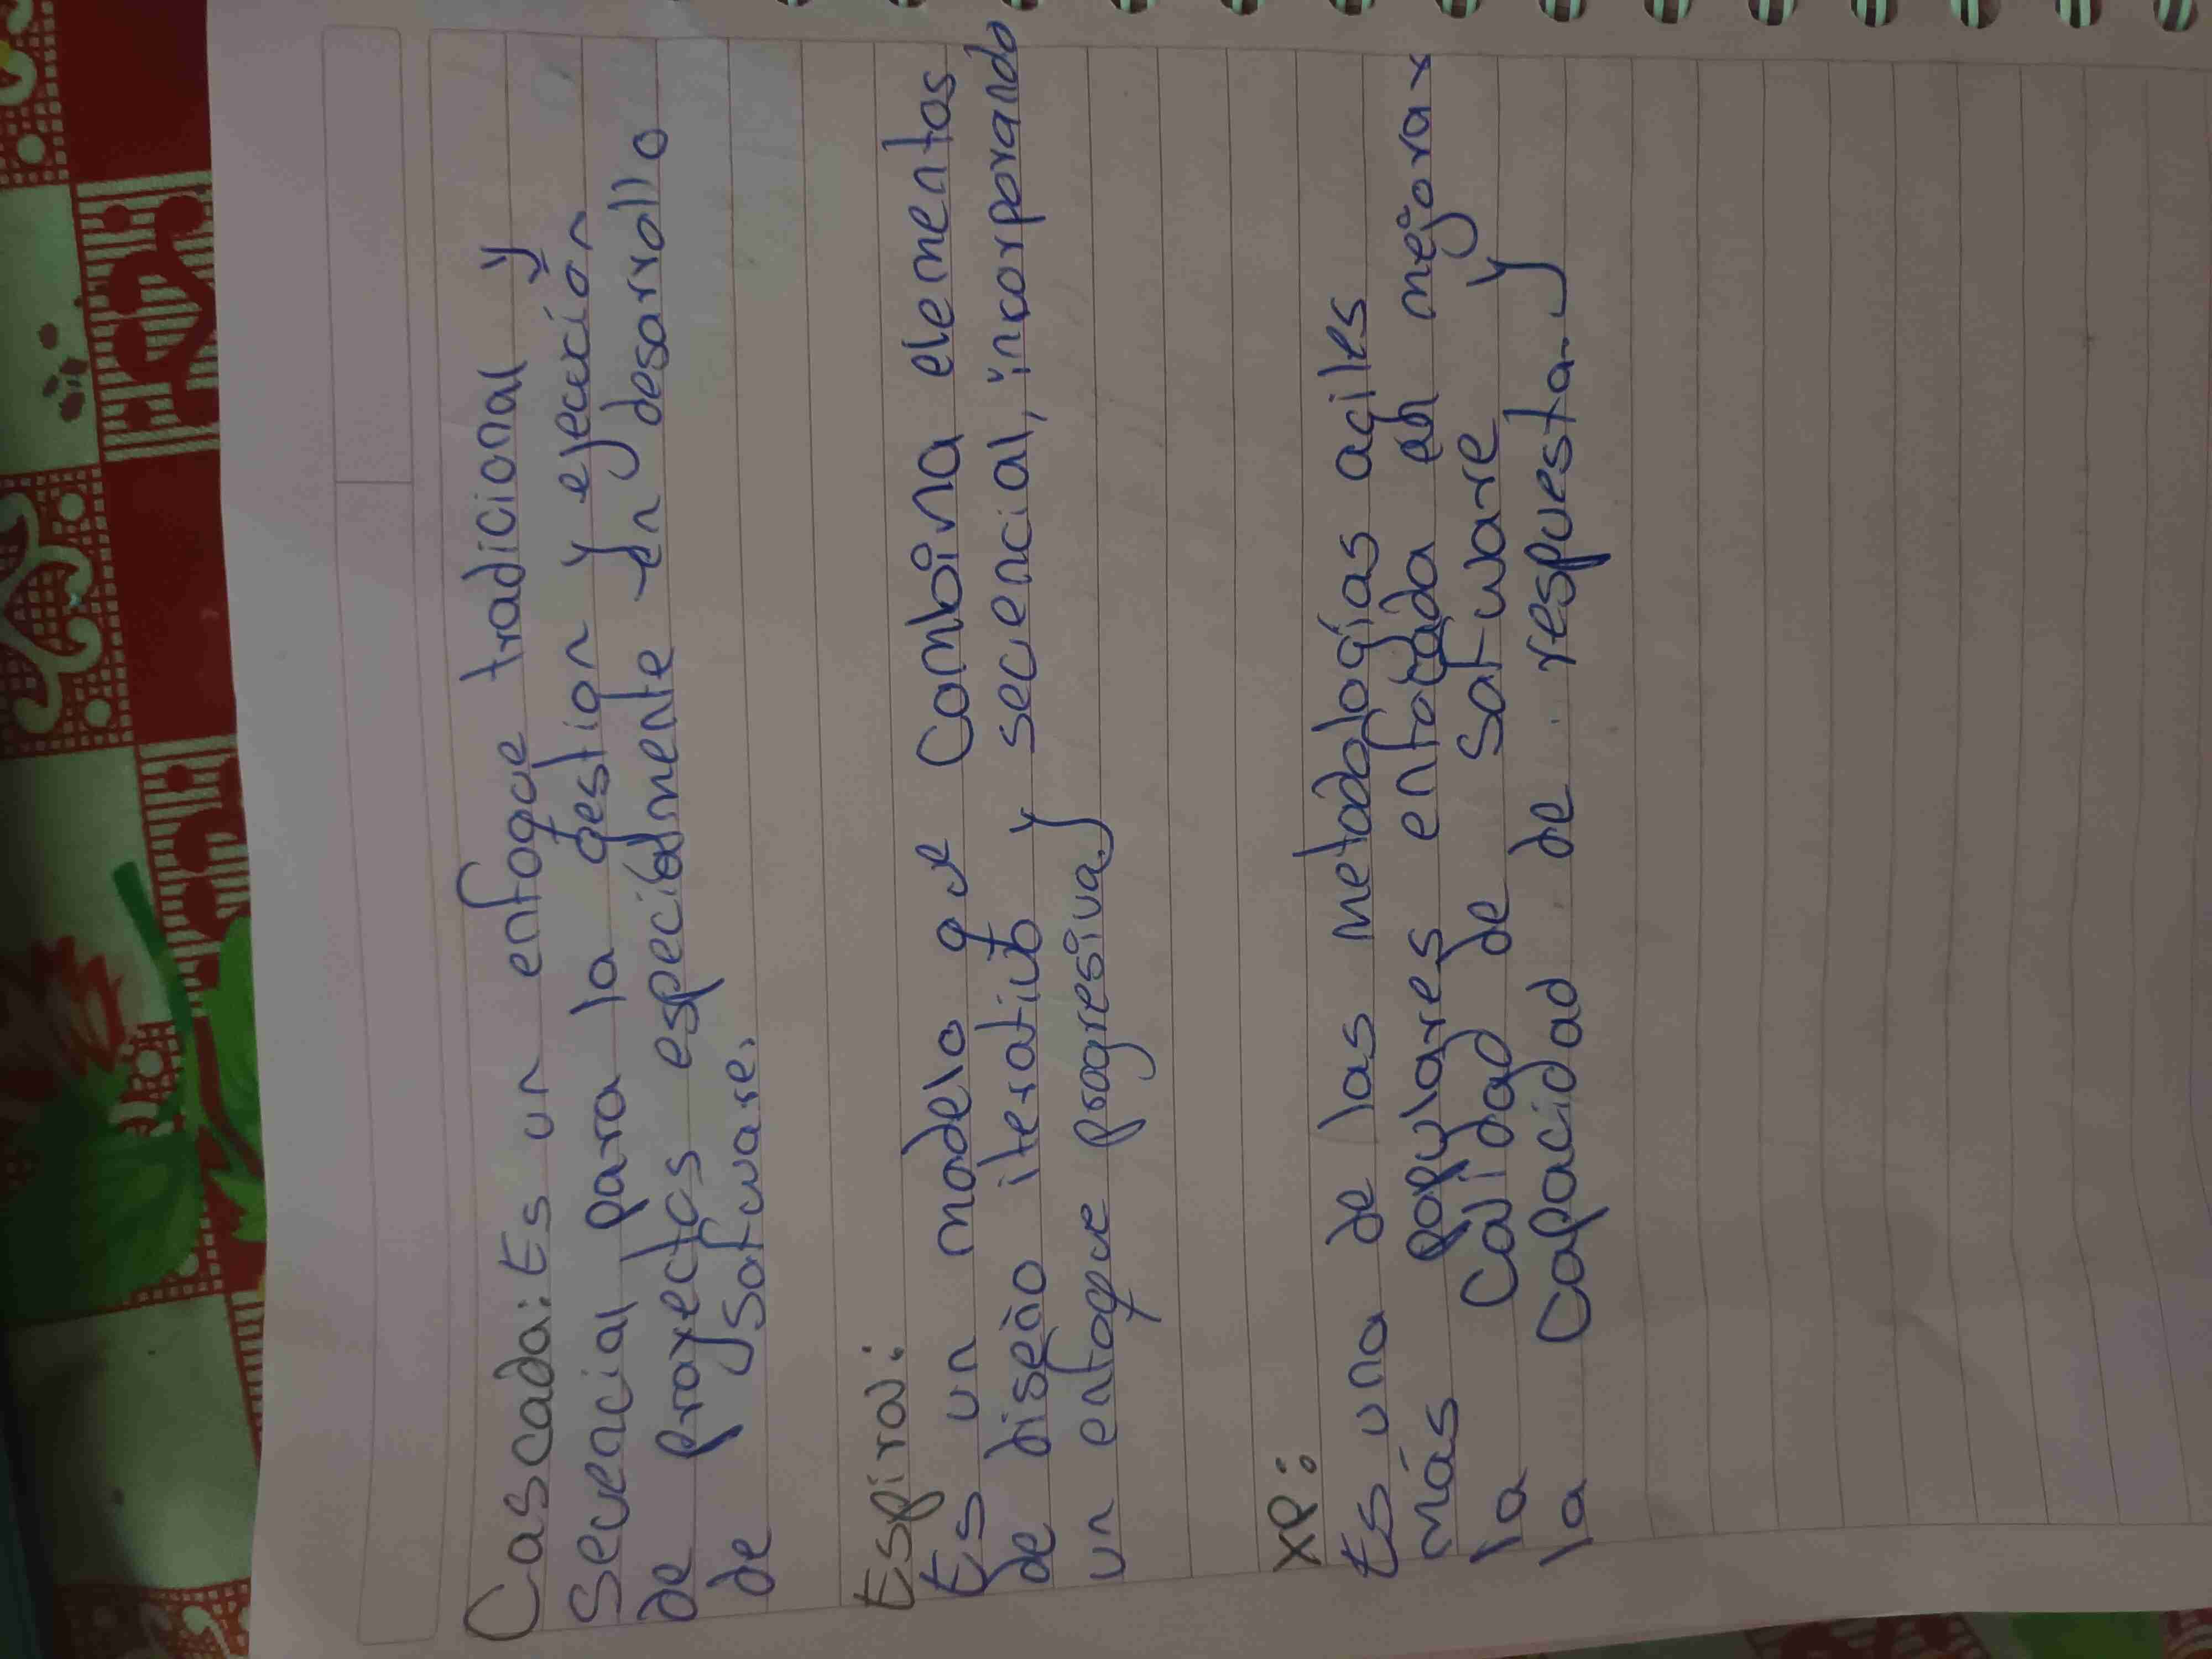 Cascada: Es un enfoque tradicional y
Secuencial para la gestion y ejecución
de proyectos especialmente en desarrollo
de Software.
Espiral:
Es un modelo que Combina elementos
de diseño iterativo y secuencial, incorporando
un enfoque progresiva
XP:
Es una de las metodologías agiles
más populares enfocada en mejorar
la Calidad de Software y
la Capacidad de respuesta.